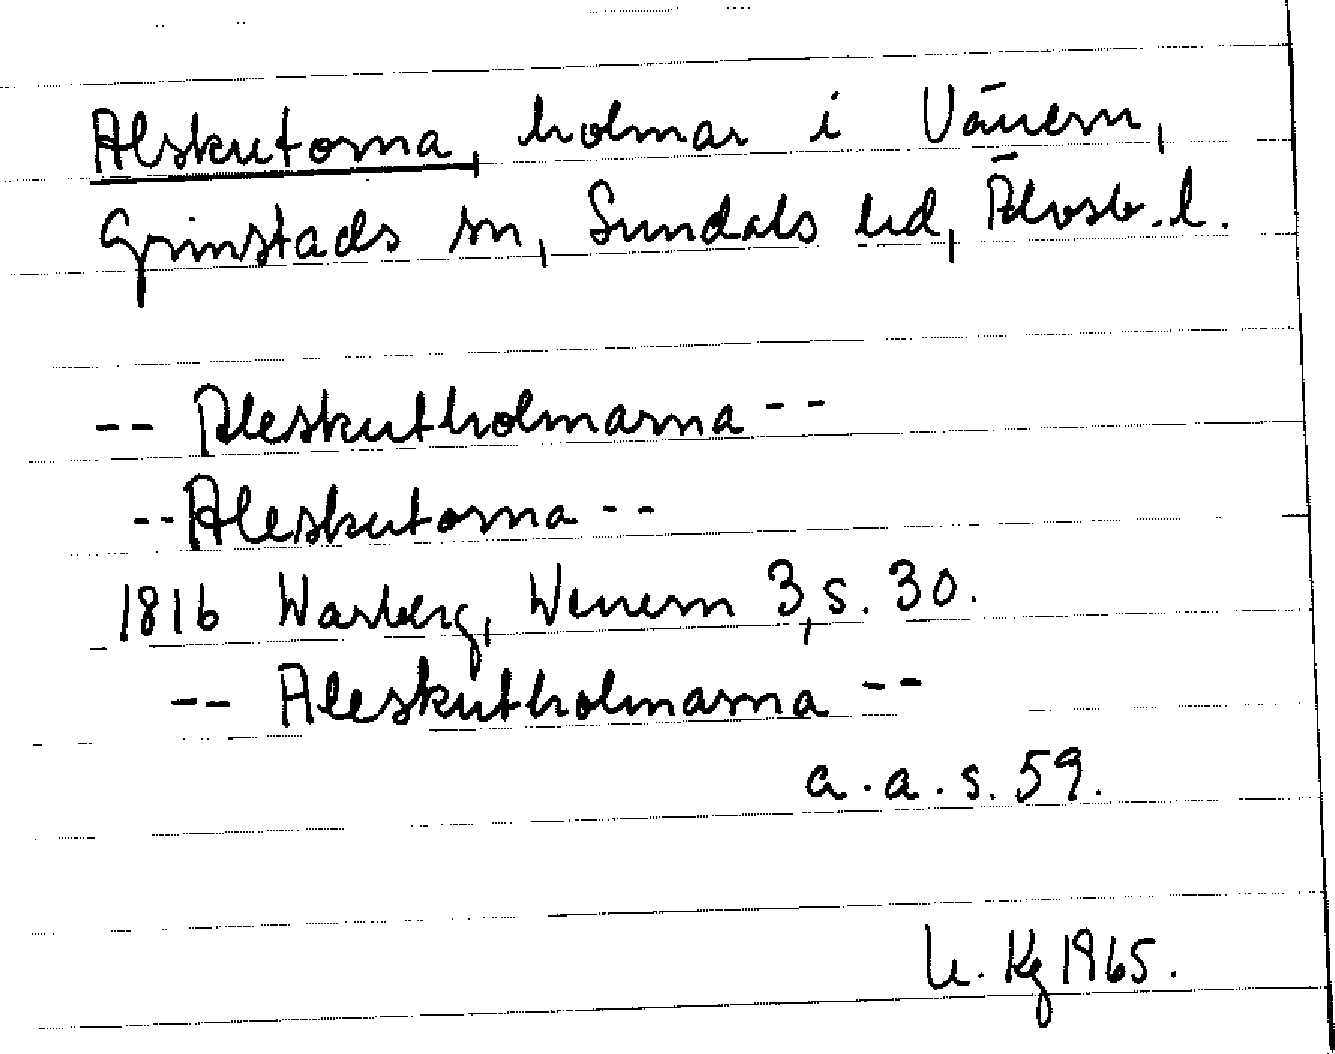 Alskutorna, holmar i Vänern,
Grinstads sn, Sundals hd, Älvsb. l.
-- Aleskutholmarna --
-- Aleskutorna --
1816 Warberg, Wenern 3, s. 30.
-- Aleskutholmarna --
a. a. s. 59.
Kg 1965.